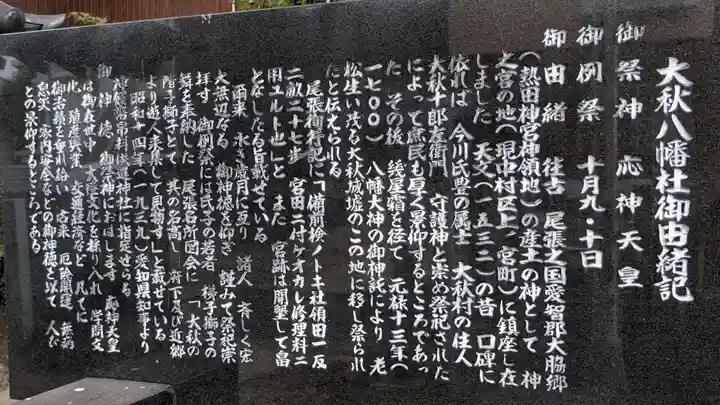 大秋八幡社御由緒記
御祭神 応神天皇
御例祭 十月九・十日
御由緒 往古 尾張之国愛智郡大脇郷
(熱田神宮神領地)の産土の神として 神
之宮の地(現中村区上ノ宮町)に鎮座し在
しました 天文(一五三二)の昔 口碑に
依れば 今川氏豊の属士 大秋村の住人
大秋十郎左衛門 守護神と崇め祭祀された
によって庶民も厚く景仰するところであっ
た その後 幾星霜を径て 元禄十三年(
一七〇〇) 八幡大神の御神託により 老
松生い茂る大秋城墟のこの地に移し祭られ
たと伝えられる
尾張徇行記に「備前検ノトキ社領田一反
二畝二十七歩 宮田二付ケオカレ修理料ニ
用ユルト也」と また 宮跡は開墾して畠
となしたる旨載せている
爾来 永き歳月に亙り 諸人 斉しく宏
大無辺なる 御神徳を仰ぎ 謹みて祭祀崇
拝す 御例祭には氏子の若者 梯子獅子の
舞を奉納した 尾張名所図会に 「大秋の
階子獅子とて 其の名高し 府下及び近郷
より遊人来集して見物す」と載せている
昭和十四年(一九三九)愛知県知事より
神饌幣帛料供進神社に指定せらる
御神徳 御祭神におはします 応神天皇
は御在世中 大陸文化を採り入れ 学問文
化 殖産興業 交通経済など 凡てに
御治績を垂れ給い 古来 厄除開運 無病
息災 家内安全などの御神徳を以て 人び
との景仰するところである